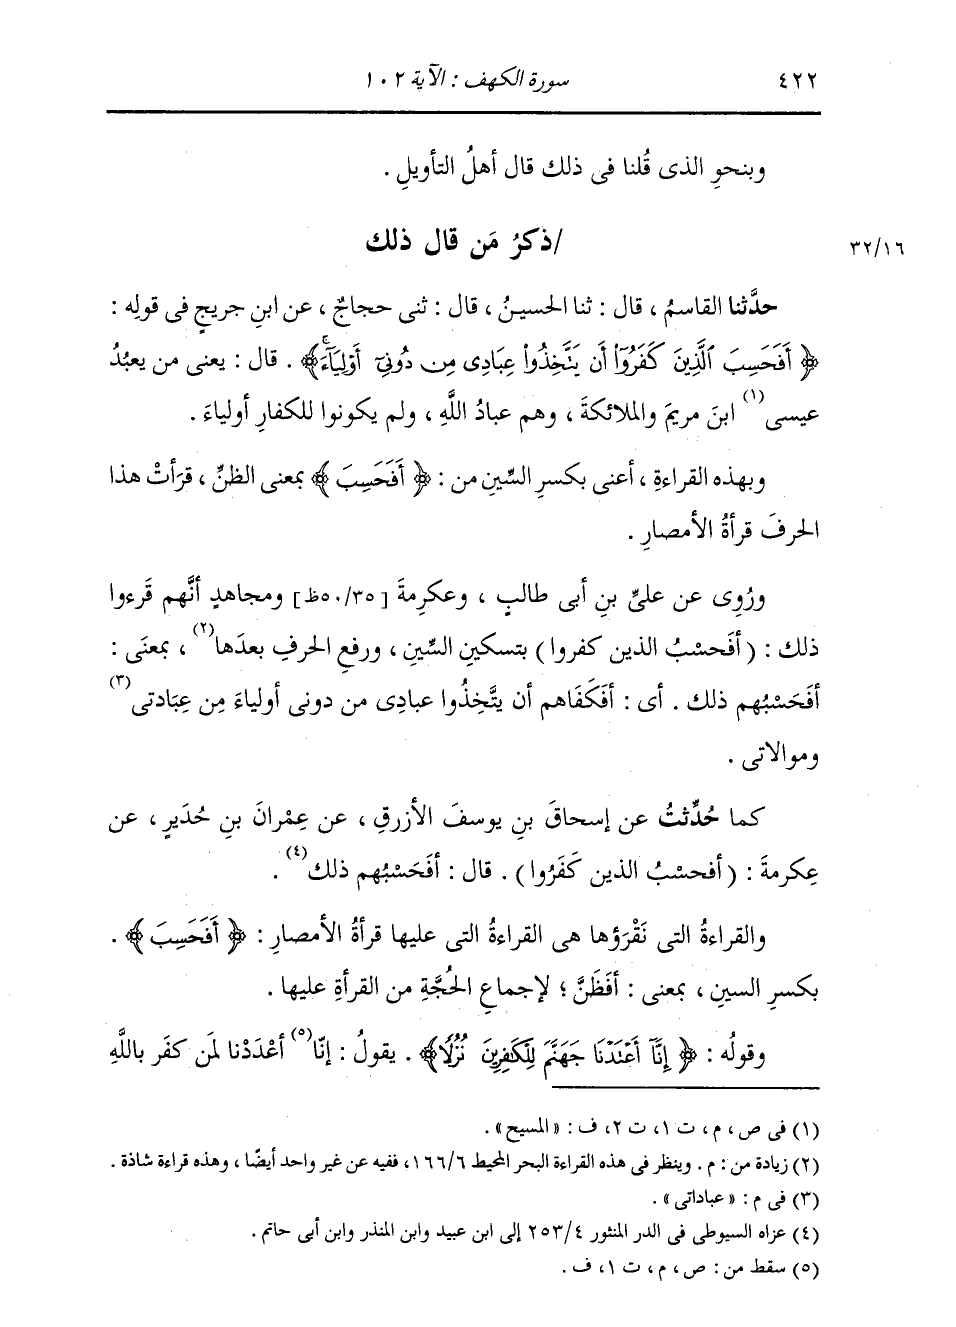 ٤٢٢ سورة الكهف : الآية ١٠٢
وبنحوِ الذى قُلنا فى ذلك قال أهلُ التأويلِ .
٣٢/١٦ /ذكرُ مَن قال ذلك
حدَّثنا القاسمُ ، قال : ثنا الحسينُ ، قال : ثنى حجاجٌ ، عن ابنِ جريجٍ فى قولِه :
﴿ أَفَحَسِبَ ٱلَّذِينَ كَفَرُوٓا۟ أَن يَتَّخِذُوا۟ عِبَادِى مِن دُونِىٓ أَوْلِيَآءَۚ ﴾ . قال : يعنى من يعبُدُ
عيسى(١) ابنَ مريمَ والملائكةَ ، وهم عبادُ اللَّهِ ، ولم يكونوا للكفارِ أولياءَ .
وبهذه القراءةِ ، أعنى بكسرِ السِّينِ من : ﴿ أَفَحَسِبَ ﴾ بمعنى الظنِّ ، قرَأتْ هذا
الحرفَ قرأةُ الأمصارِ .
ورُوِى عن علىِّ بنِ أبى طالبٍ ، وعكرِمةَ [٥٠/٣٥ظ] ومجاهدٍ أنَّهم قَرءوا
ذلك : ( أفَحسْبُ الذين كفروا ) بتسكينِ السِّينِ ، ورفعِ الحرفِ بعدَها(٢) ، بمعنَى :
أفَحَسْبُهم ذلك . أى : أفكَفَاهم أن يتَّخِذُوا عبادِى من دونى أولياءَ مِن عِبَادتى(٣)
وموالاتى .
كما حُدِّثتُ عن إسحاقَ بنِ يوسفَ الأزرقِ ، عن عِمْرانَ بنِ حُدَيرٍ ، عن
عِكرمةَ : ( أفحسْبُ الذين كَفَرُوا ) . قال : أفَحَسْبُهم ذلك(٤) .
والقراءةُ التى نَقْرَؤها هى القراءةُ التى عليها قرأةُ الأمصارِ : ﴿ أَفَحَسِبَ ﴾ .
بكسرِ السينِ ، بمعنى : أفَظَنَّ ؛ لإجماعِ الحُجَّةِ من القرأةِ عليها .
وقولُه : ﴿ إِنَّآ أَعْتَدْنَا جَهَنَّمَ لِلْكَٰفِرِينَ نُزُلًا ﴾ . يقولُ : إنّا(٥) أعْدَدْنا لمَن كفَر باللَّهِ
(١) فى ص ، م ، ت ١ ، ت ٢ ، ف : « المسيح » .
(٢) زيادة من : م . وينظر فى هذه القراءة البحر المحيط ١٦٦/٦ ، ففيه عن غير واحد أيضًا ، وهذه قراءة شاذة .
(٣) فى م : « عباداتى » .
(٤) عزاه السيوطى فى الدر المنثور ٢٥٣/٤ إلى ابن عبيد وابن المنذر وابن أبى حاتم .
(٥) سقط من : ص ، م ، ت ١ ، ف .